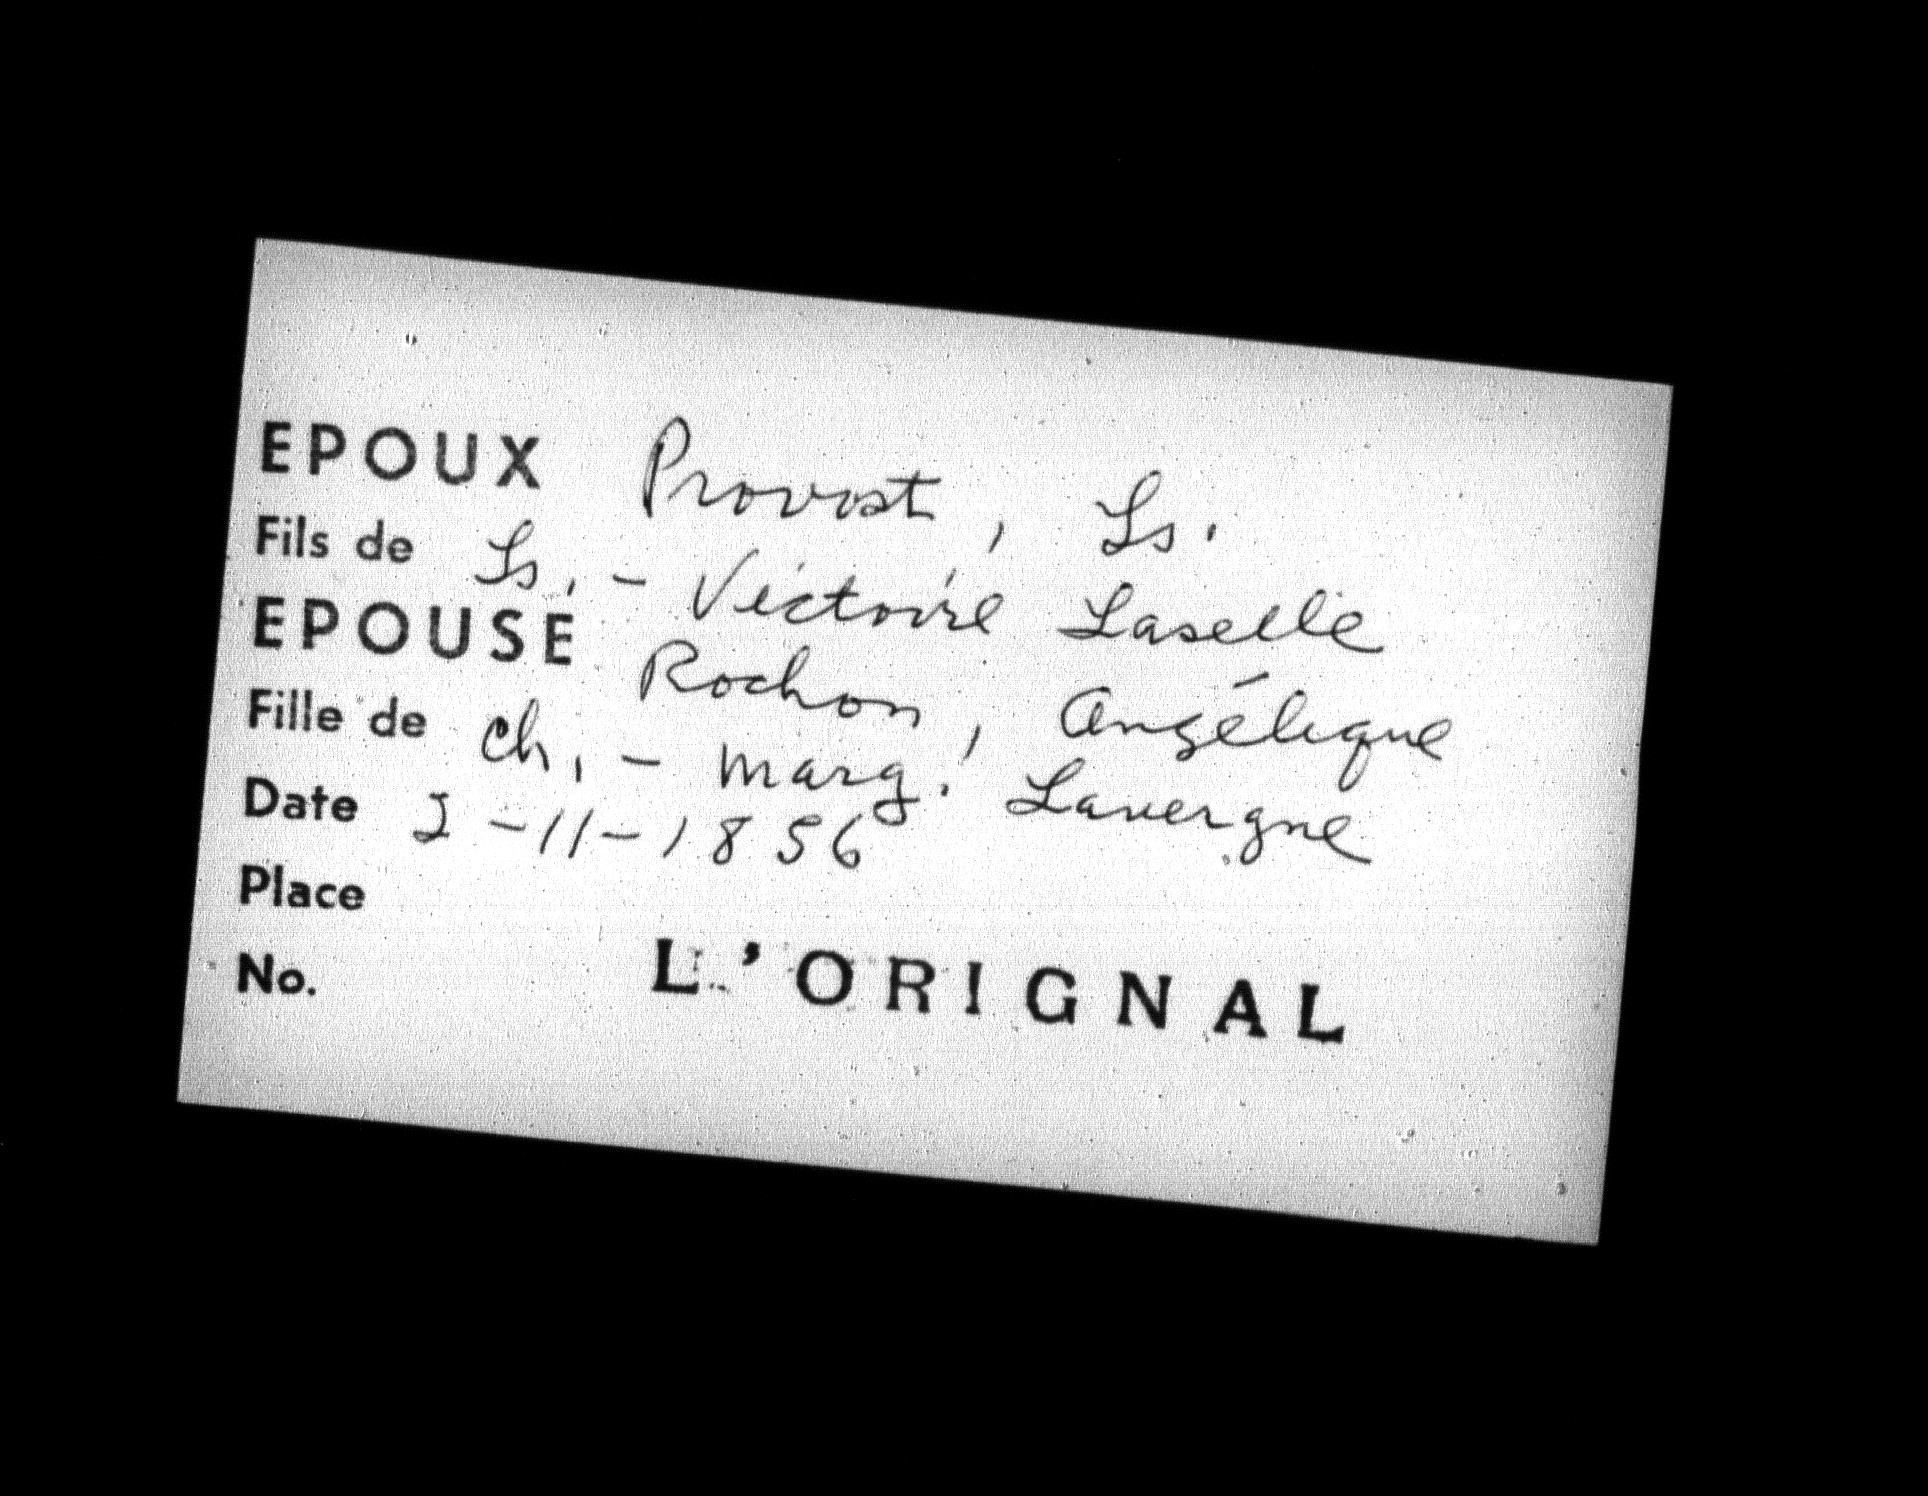 EPOUX Provost, Ls.
Fils de Ls. - Victoire Laselle
EPOUSE Rochon, Angélique
Fille de Ch. - Marg. Lavergne
Date 2-11-1856
Place
No. L'ORIGNAL